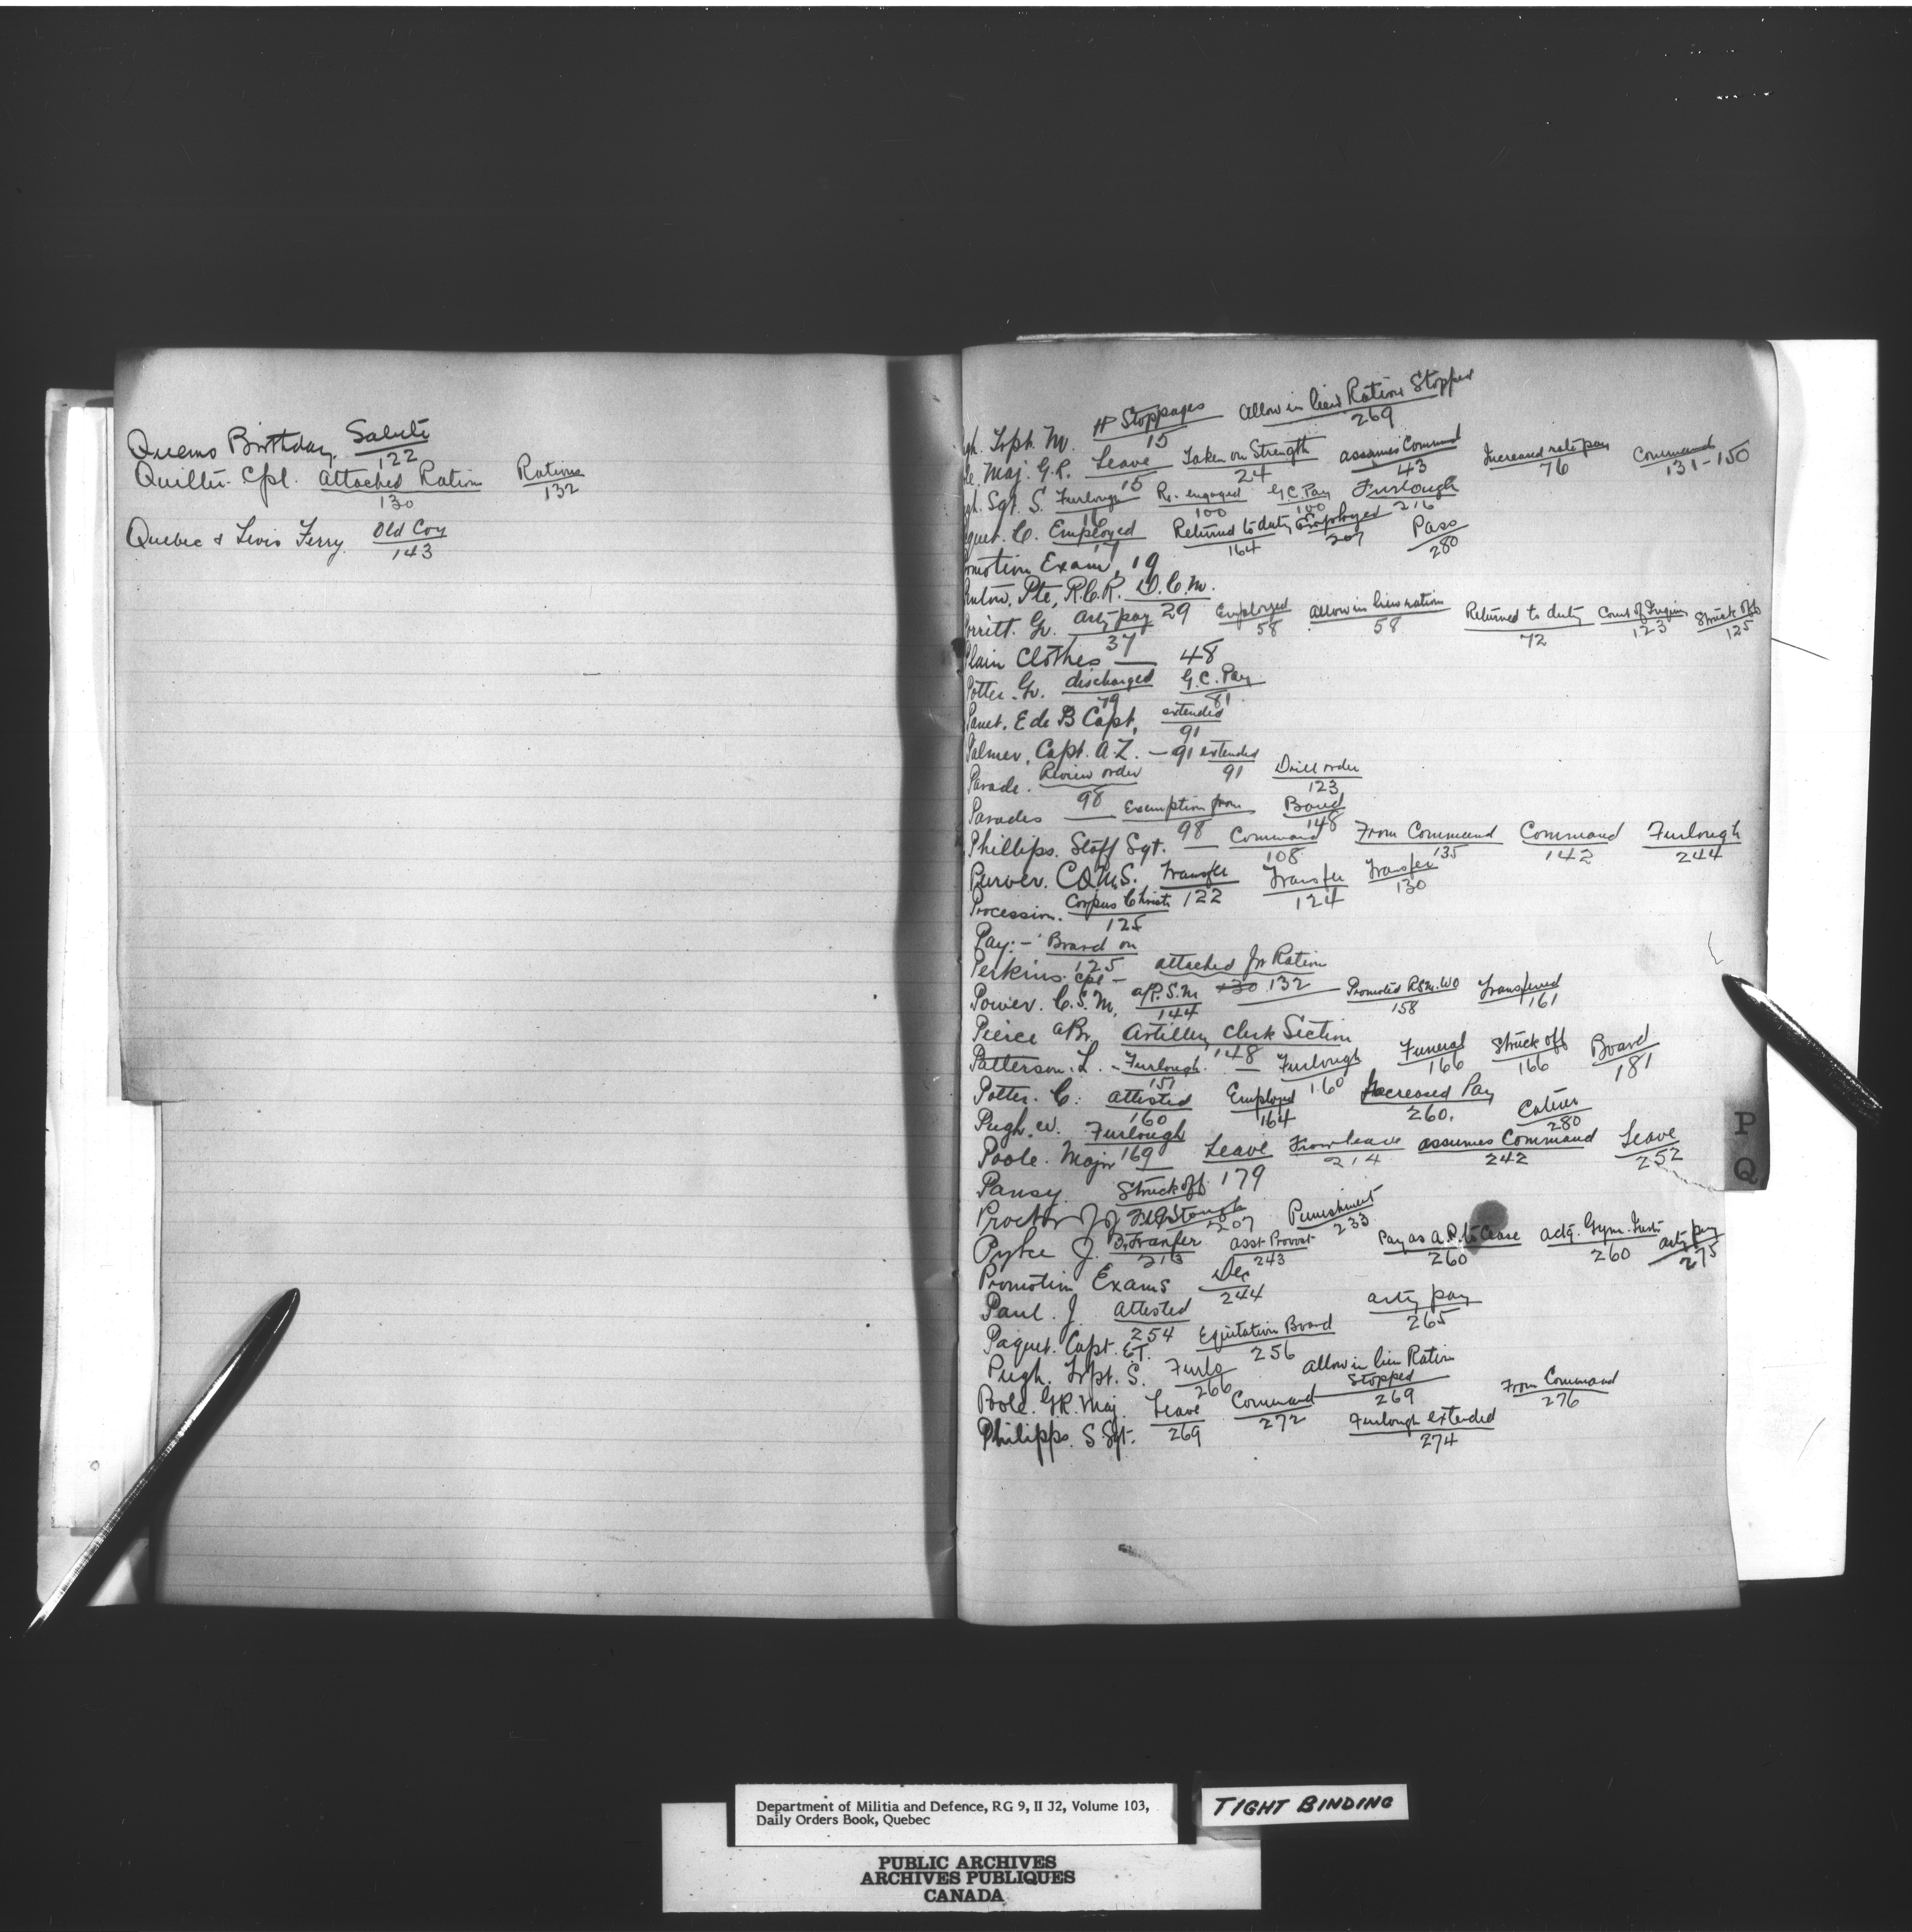 Queens Birthday. Salute
122
Quilter. Cpl. Attached Ration Rations
130 132
Quebec & Levis Ferry. Old Coy
143
gh. Trpt. M. H Stoppages Allow in lieu Rations Stopped
15 269
le. Maj. G.R. Leave Taken on Strength assumes Command Increased rate pay Command
15 24 43 76 131-150
gh. Sgt. S. Furlough Re. engaged G.C. Pay Furlough
16 100 100 216
quet. C. Employed Returned to duty Employed Pass
17 164 207 280
omotion Exam, 19
Pte, R.C.R. D.C.M.
29
orritt. Gr. Arty pay Employed allow in lieu ration Returned to duty Court of Inquiry Struck off
37 58 58 72 123 125
Plain Clothes — 48
Potter. Gr. discharged G.C. Pay
79 81
Panet. E de B Capt, extended
91
Palmer, Capt. A.Z. — 91 extended
91
Parade. Review order Drill order
98 123
Parades Exemption from Board
98 148
Phillips. Staff Sgt. Command From Command Command Furlough
108 135 142 244
Purver. C.Q.M.S. Transfer Transfer Transfer
122 124 130
Procession. Corpus Christi
125
Pay:- Board on
125
Perkins. Cpl - attached for Ration
130 132
Power. C.S.M, a/R.S.M Promoted R.S.M. WO Transferred
144 158 161
Pierce a/Br. Artillery Clerk Section
148
Patterson. L. - Furlough. Furlough Funeral Struck off Board
151 160 166 166 181
Potter. C: attested Employed Increased Pay
160 164 260.
Pugh. W. Furlough
169 280
Poole. Major Leave From leave assumes Command Leave
214 242 252
Pansy. Struck off 179
Proctor Punishment
207 233
Pyke J. Transfer Asst Provost Pay as A.P. to Cease actg. Gym. Inst. arty pay
213 243 260 260 275
Promotion Exams Dec
244
Paul. J. Attested arty pay
254 265
Paquet. Capt. E.T. Equitation Board
256
Pugh. Trpt. S. Furlo allow in lieu Ration
Stopped
266 269
Poole. G.R. Maj. Leave Command From Command
269 272 276
Philipps. S. Sgt. Furlough extended
274
P
Q
Department of Militia and Defence, RG 9, II J2, Volume 103,
Daily Orders Book, Quebec
TIGHT BINDING
PUBLIC ARCHIVES
ARCHIVES PUBLIQUES
CANADA